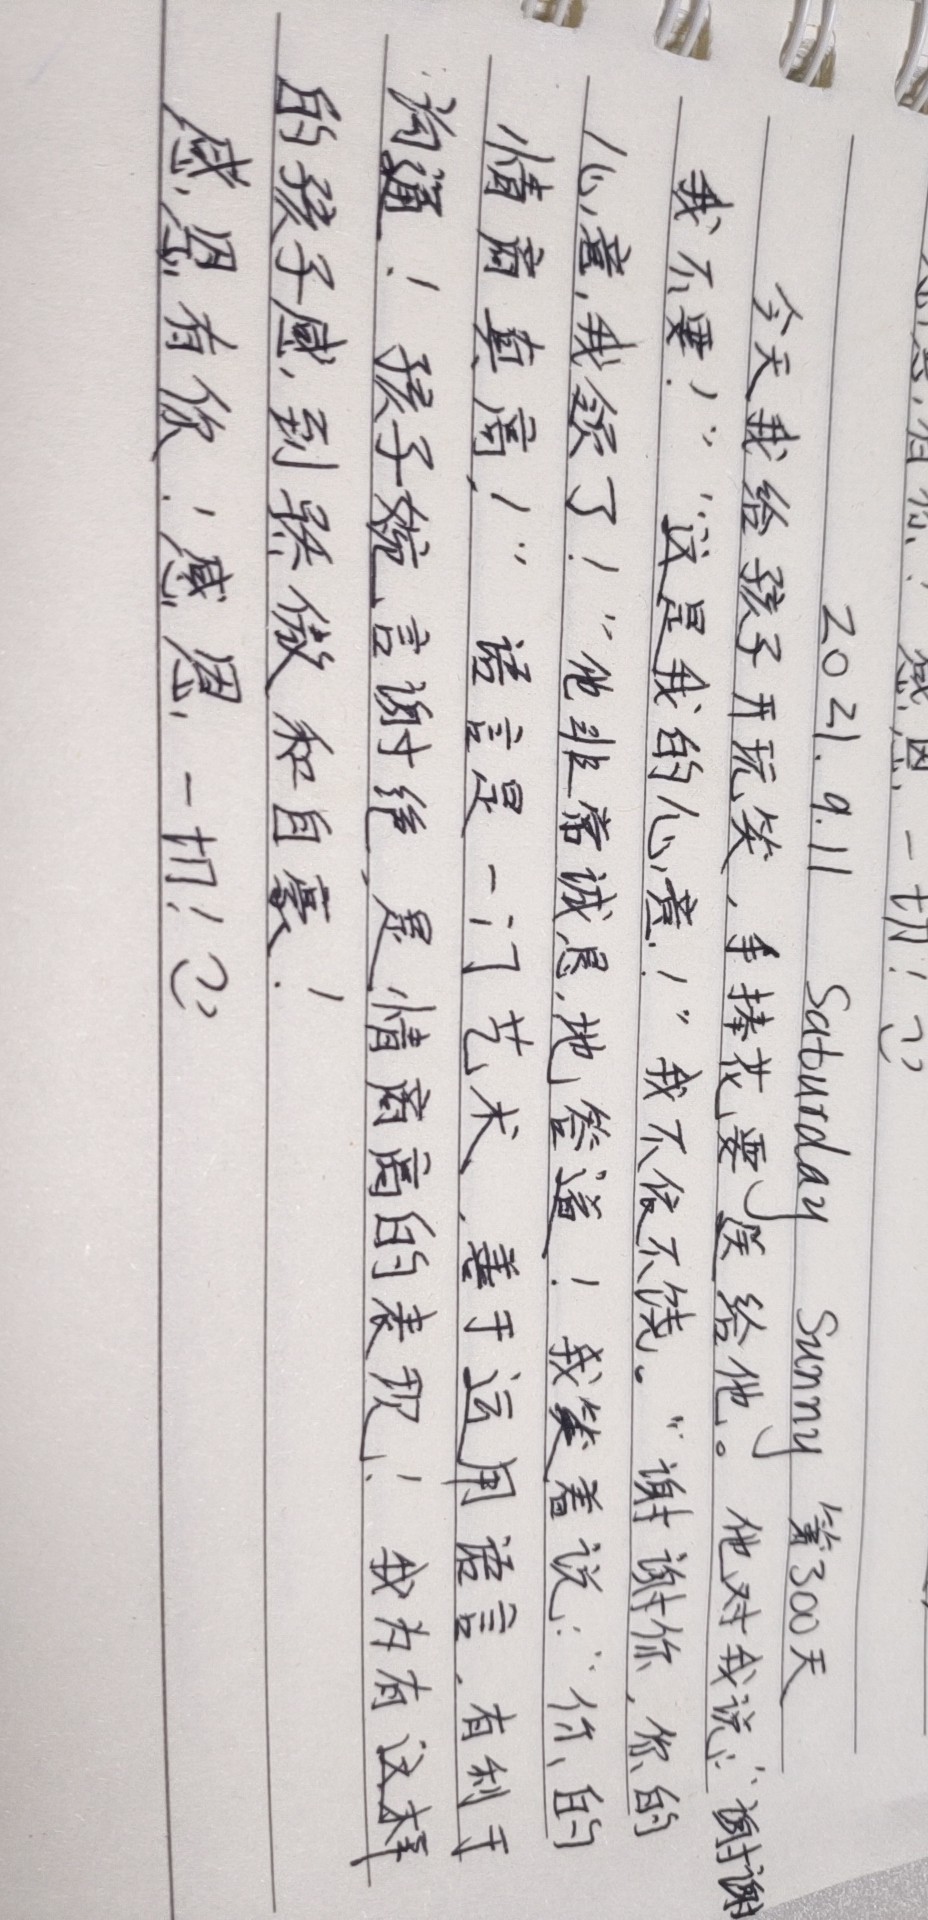 感恩一切!
2021.9.11 Saturday Sunny 第300天
今天我给孩子开玩笑,手捧花要送给他。他对我说:“谢谢
我不要!”“这是我的心意!”我不依不饶。“谢谢你,你的
心意,我领了!”他非常诚恳地答道!我笑着说:“你的
情商真高!”语言是一门艺术,善于运用语言,有利于
沟通!孩子婉言谢绝,是情商高的表现!我为有这样
的孩子感到骄傲和自豪!
感恩有你!感恩一切!